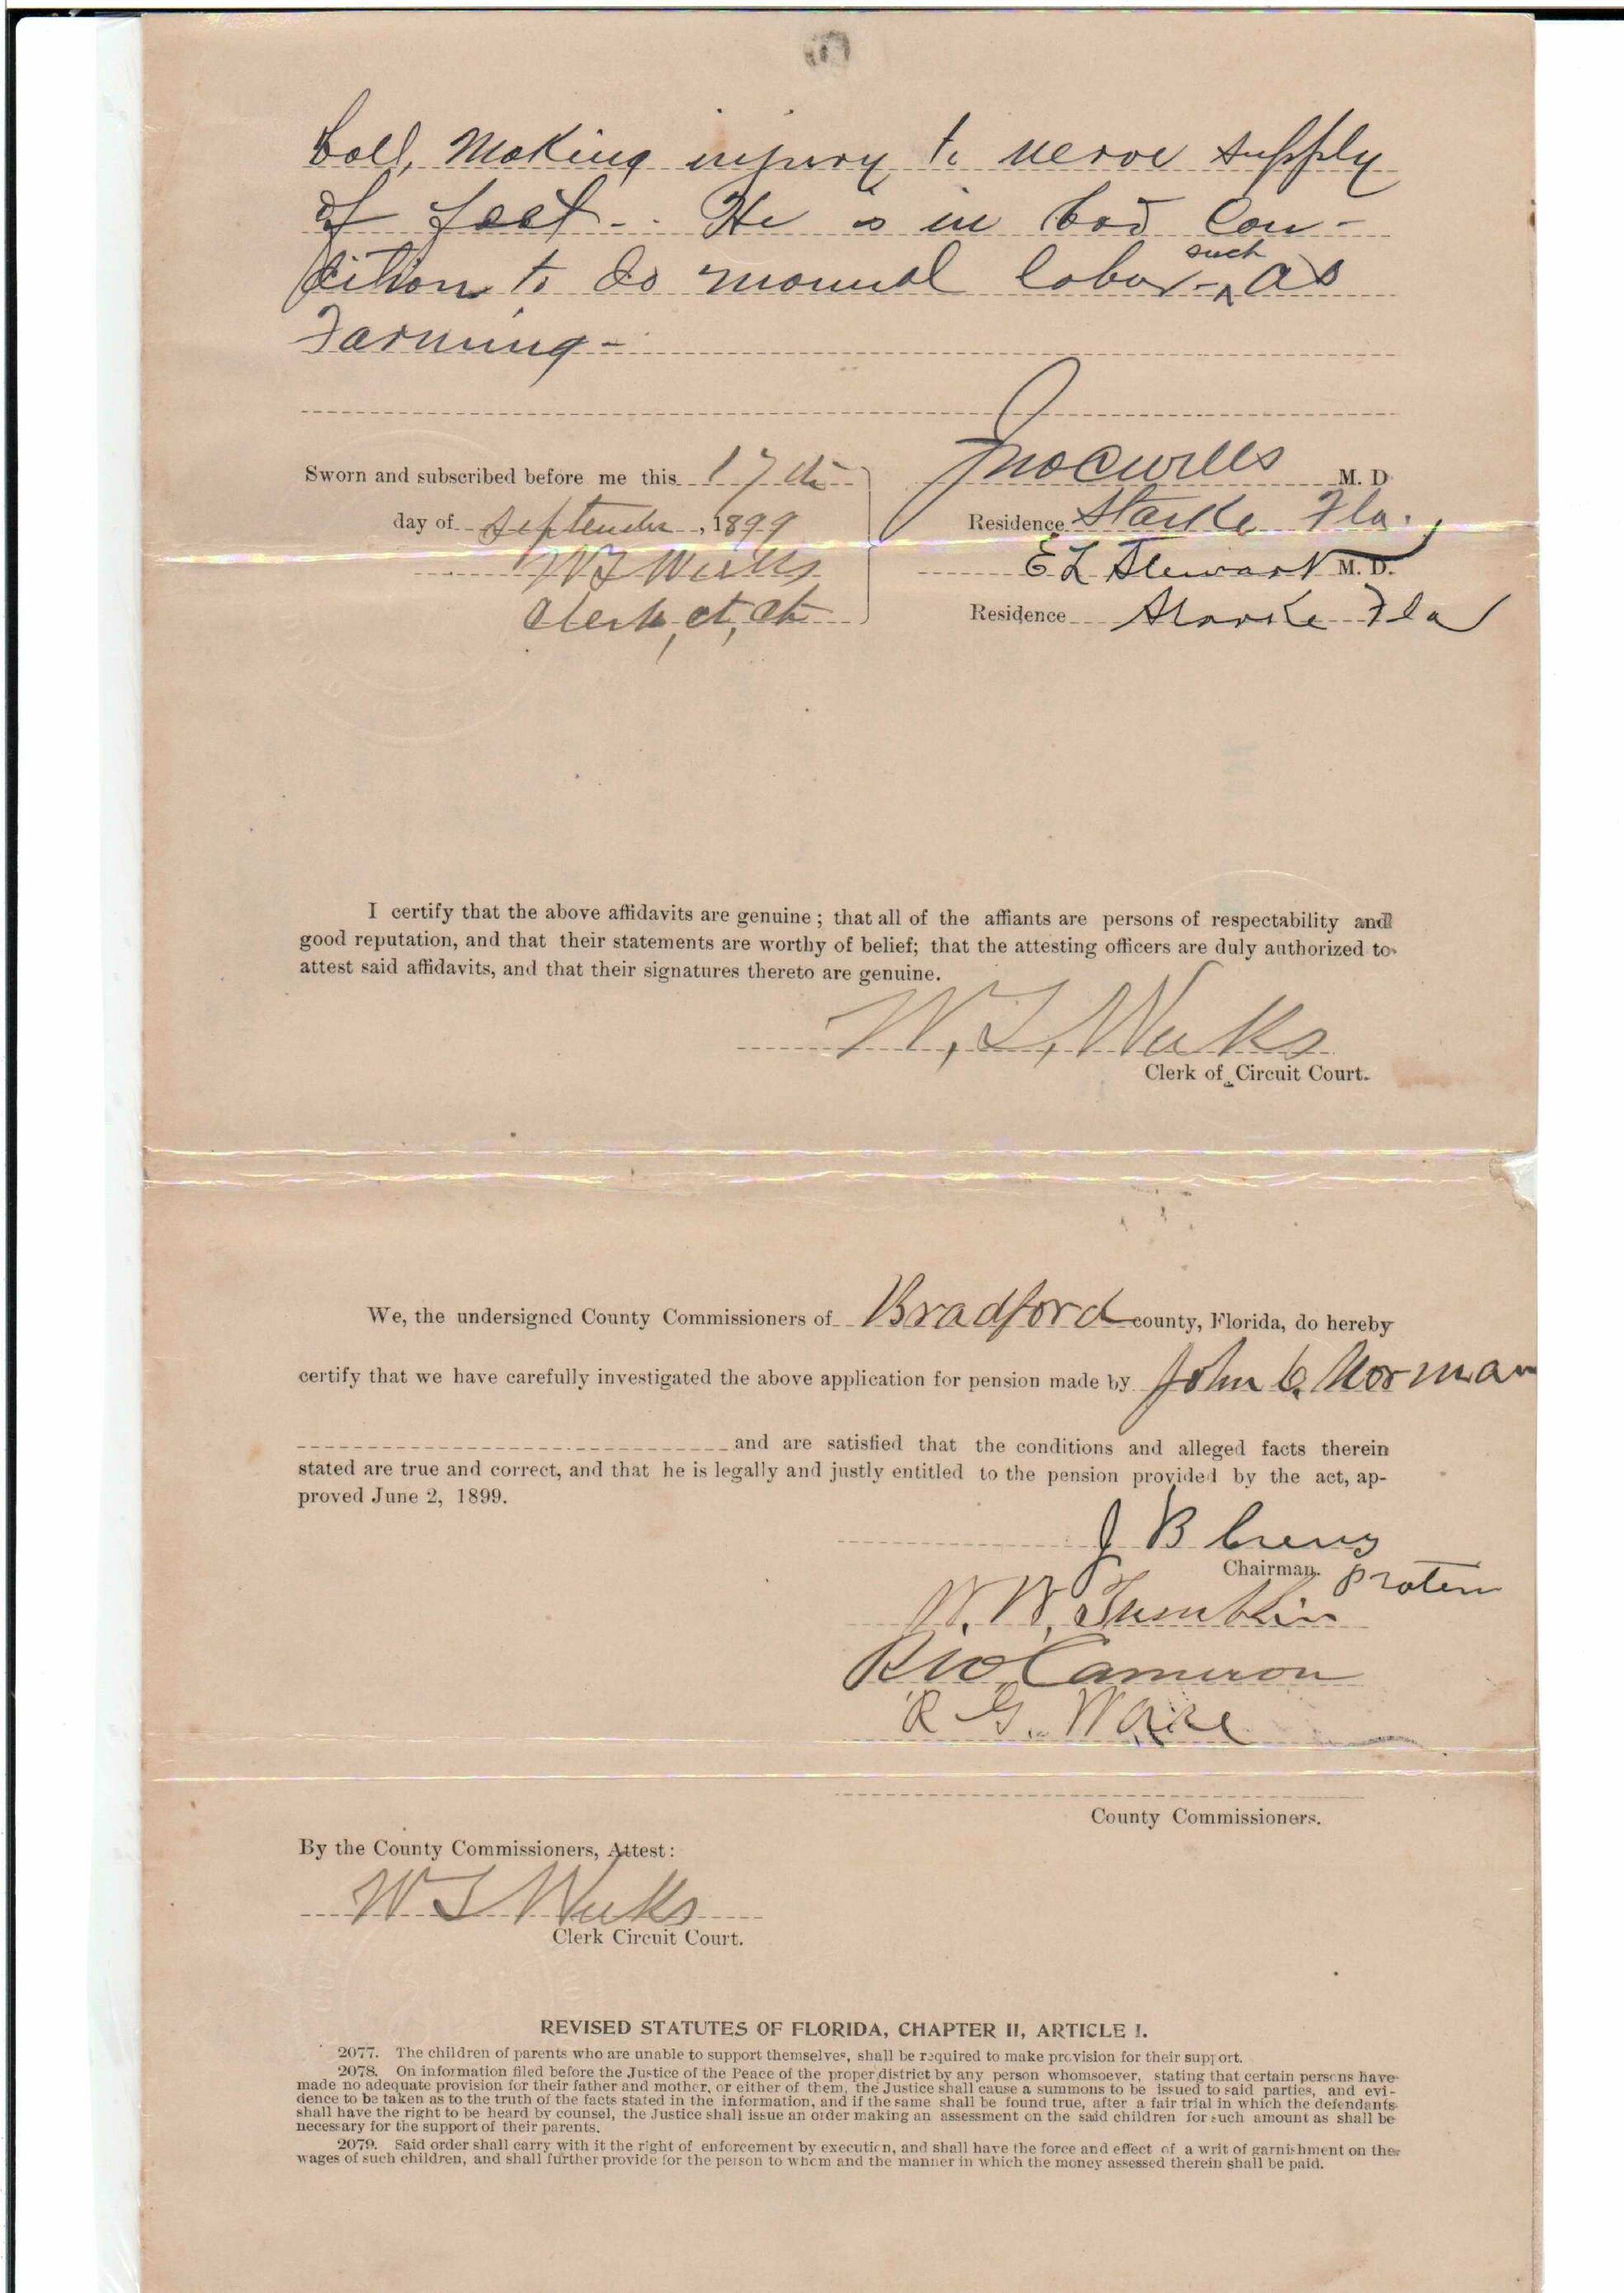 ball, making injury to nerve supply
of foot - He is in bad Con-
dition to do manual labor - such as
Farming -
Sworn and subscribed before me this 17th
day of September, 1899
W T Weeks
Clerk, ct, ct
Jno C Wills M. D.
Residence Starke Fla.
E L Stewart M. D.
Residence Starke Fla
I certify that the above affidavits are genuine; that all of the affiants are persons of respectability and
good reputation, and that their statements are worthy of belief; that the attesting officers are duly authorized to
attest said affidavits, and that their signatures thereto are genuine.
W. T. Weeks
Clerk of Circuit Court.
We, the undersigned County Commissioners of Bradford county, Florida, do hereby
certify that we have carefully investigated the above application for pension made by John C. Norman
and are satisfied that the conditions and alleged facts therein
stated are true and correct, and that he is legally and justly entitled to the pension provided by the act, ap-
proved June 2, 1899.
J B Crews
Chairman. protem
W. W. Tumblin
R W Cameron
R G.
County Commissioners.
By the County Commissioners, Attest:
W T Weeks
Clerk Circuit Court.
REVISED STATUTES OF FLORIDA, CHAPTER II, ARTICLE I.
2077. The children of parents who are unable to support themselves, shall be required to make provision for their support.
2078. On information filed before the Justice of the Peace of the proper district by any person whomsoever, stating that certain persons have
made no adequate provision for their father and mother, or either of them, the Justice shall cause a summons to be issued to said parties, and evi-
dence to be taken as to the truth of the facts stated in the information, and if the same shall be found true, after a fair trial in which the defendants
shall have the right to be heard by counsel, the Justice shall issue an order making an assessment on the said children for such amount as shall be
necessary for the support of their parents.
2079. Said order shall carry with it the right of enforcement by execution, and shall have the force and effect of a writ of garnishment on the
wages of such children, and shall further provide for the person to whom and the manner in which the money assessed therein shall be paid.